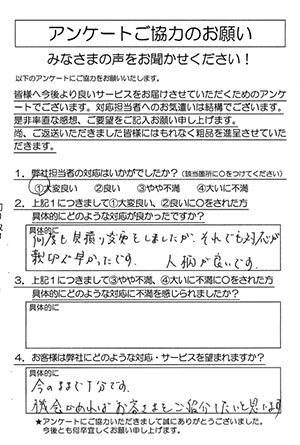 アンケートご協力のお願い
みなさまの声をお聞かせください！
以下のアンケートにご協力をお願いいたします。
皆様へ今後より良いサービスをお届けさせていただくためのアンケ
ートでございます。対応担当者へのお気遣いは結構でございます。
是非率直な感想、ご要望をご記入お願い申し上げます。
尚、ご返送いただきました皆様にはもれなく粗品を進呈させていた
だきます。
1．弊社担当者の対応はいかがでしたか？（該当箇所に○をつけてください）
①大変良い ②良い ③やや不満 ④大いに不満
2．上記1につきまして①大変良い、②良いに○をされた方
具体的にどのような対応が良かったですか？
具体的に
何度も見積り変更をしましたが、それでも対応が
親切で早かったです。 人柄が良いです。
3．上記1につきまして③やや不満、④大いに不満に○をされた方
具体的にどのような対応に不満を感じられましたか？
具体的に
4．お客様は弊社にどのような対応・サービスを望まれますか？
具体的に
今のままで十分です。
機会があればお客さまをご紹介したいと思います
★アンケートにご協力いただきまして誠にありがとうございました。
今後とも何卒宜しくお願い申し上げます。